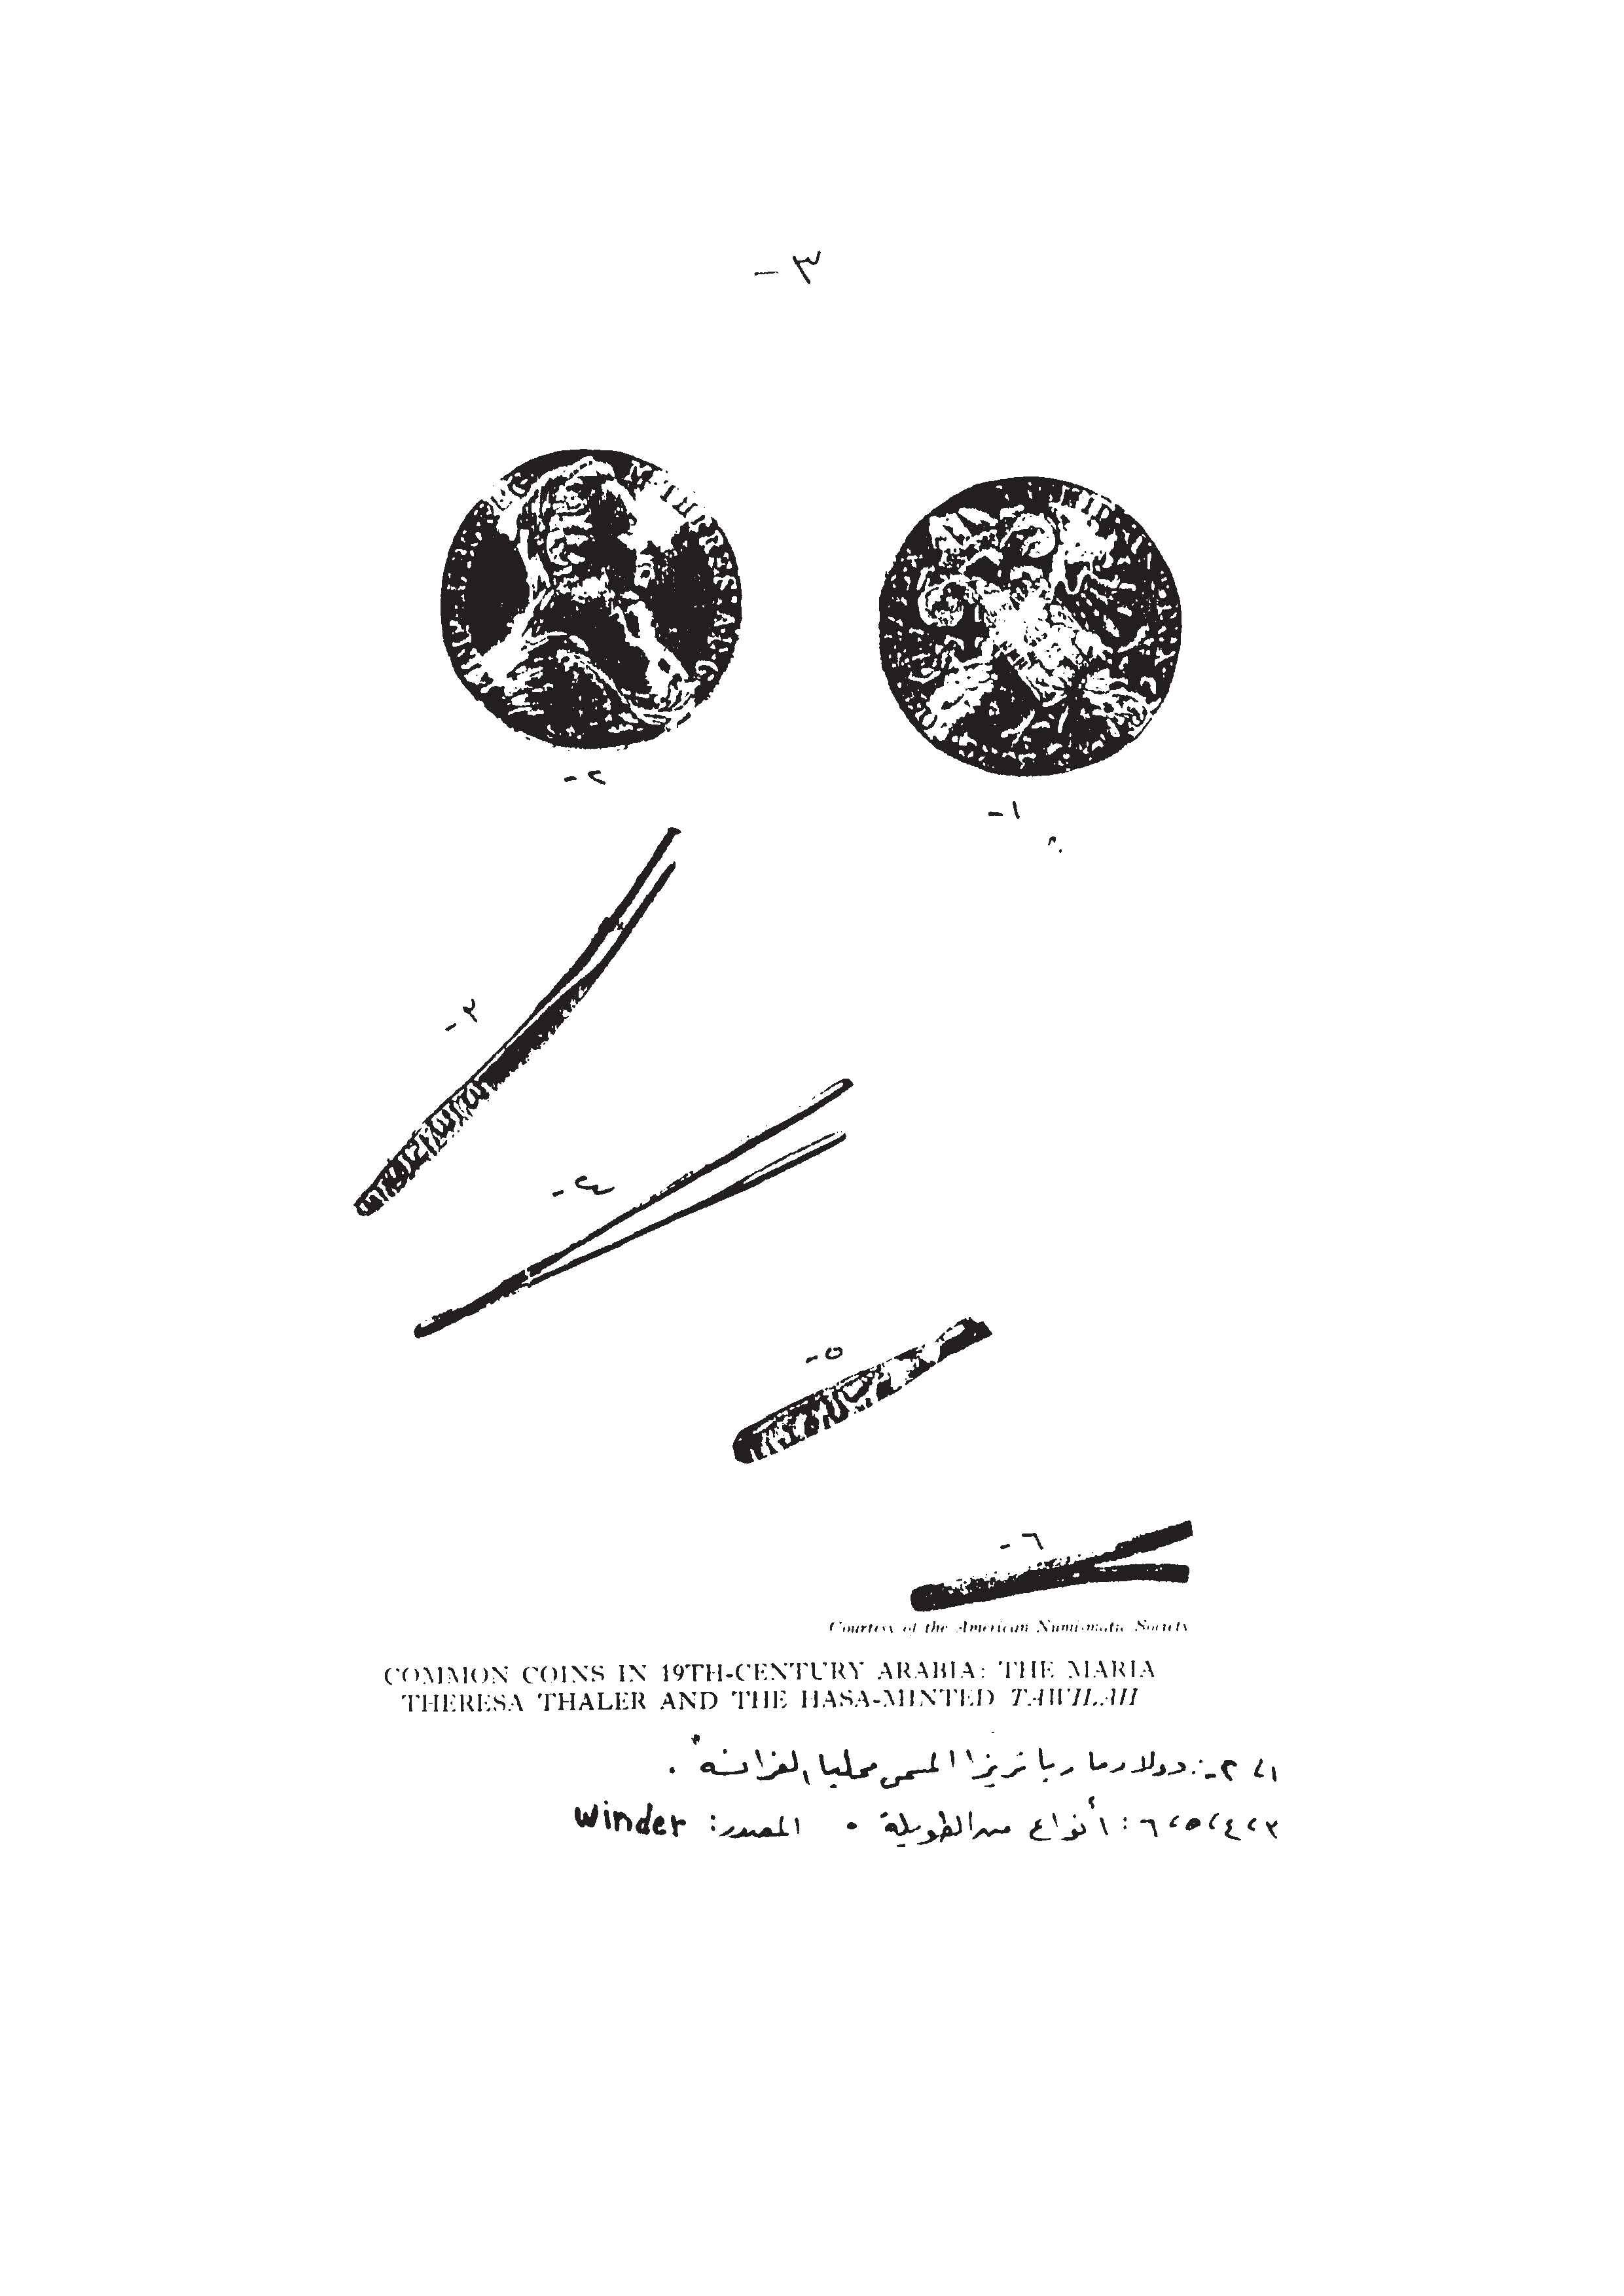 ٣ -
M. THERESIA. D. G.
١ -
٢ -
٣ -
٤ -
٥ -
٦ -
Courtesy of the American Numismatic Society
COMMON COINS IN 19TH-CENTURY ARABIA: THE MARIA
THERESA THALER AND THE HASA-MINTED TAWILAH
١، ٢-: دولار ماريا تريزا المسمى محليا "الفرانسه".
٣، ٤، ٥، ٦: أنواع من الطويلة . المصدر: Winder